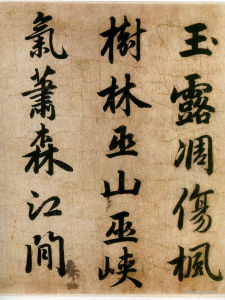 玉露凋傷楓
樹林巫山巫峽
氣蕭森江間